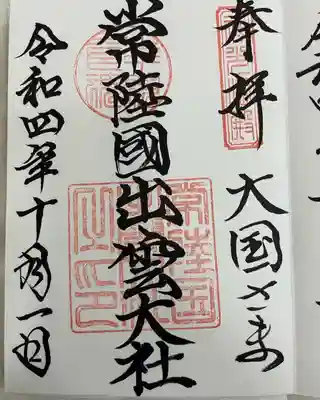 奉拝 大国さま
常陸國出雲大社
令和四年十月一日